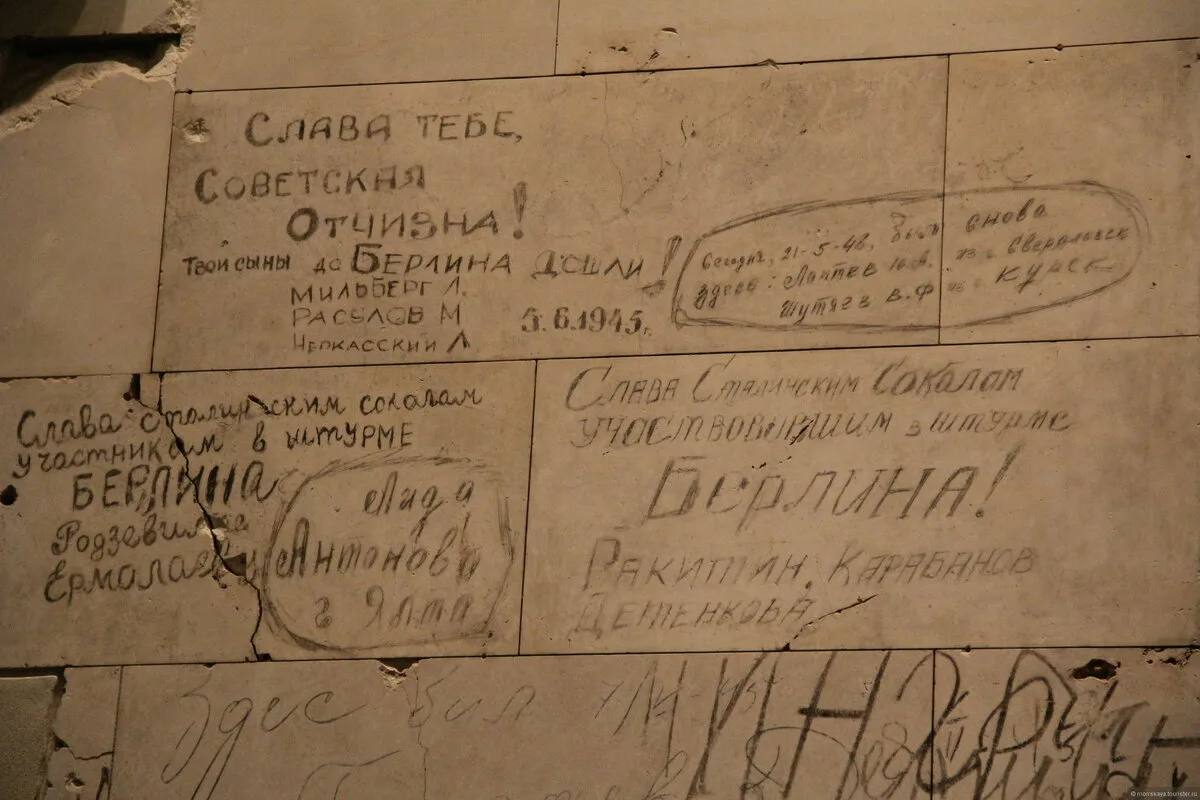 СЛАВА ТЕБЕ,
СОВЕТСКАЯ
ОТЧИЗНА!
Твои сыны до БЕРЛИНА ДОШЛИ!
МИЛЬБЕРГ Л.
РАСУЛОВ М
ЧЕРКАССКИЙ Л
5.6.1945г.
Сегодня, 21-5-48, были снова
здесь: Лаптев из г. Свердловск
Шутяев В.Ф из г. КУРСК
Слава Сталинским соколам
участникам в штурме
БЕРЛИНА
Родзевил
Ермолаев
Лида
Антонова
г Ялта
Слава Сталинским Соколам
УЧАСТВОВАВШИМ в штурме
БЕРЛИНА!
РАКИТИН. КАРАБАНОВ
ДЕТЕНКОВА
Здес бил